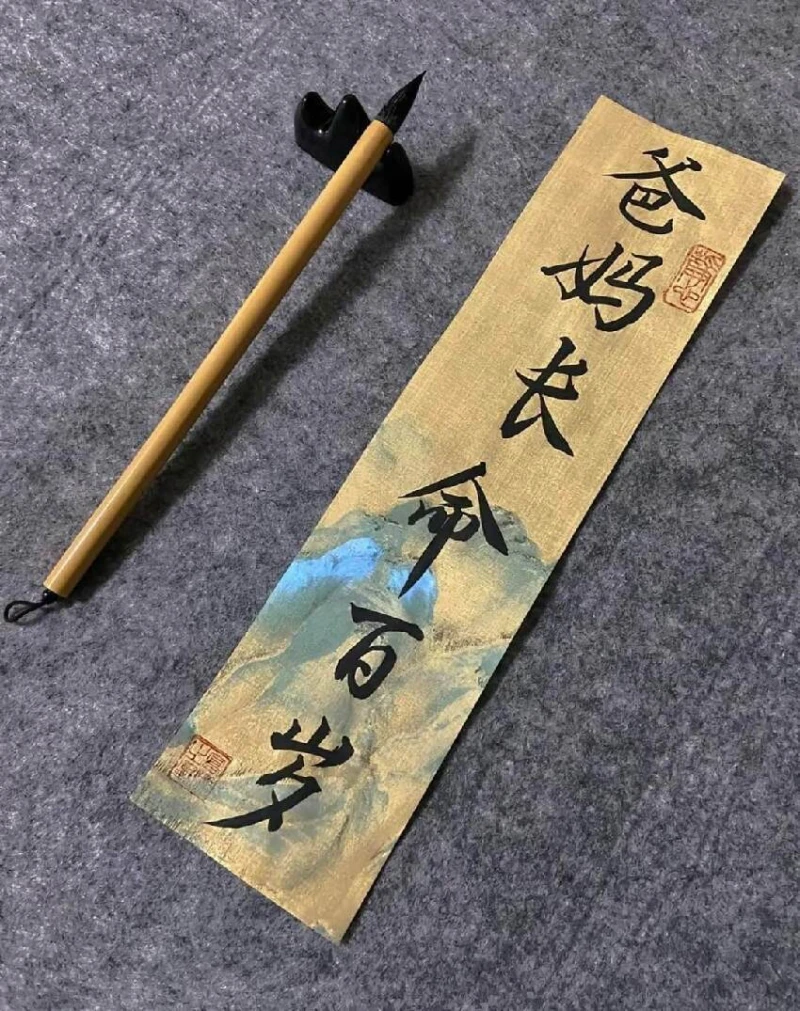 爸妈长命百岁